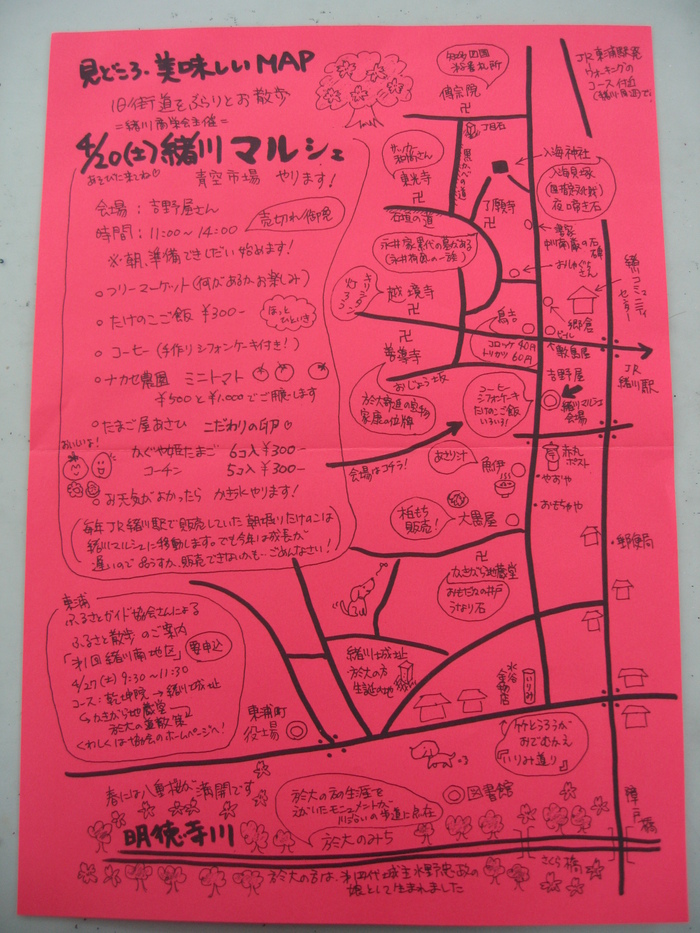 見どころ・美味しいMAP
旧街道をぶらりとお散歩
=緒川商栄会主催=
4/20(土)緒川マルシェ
あそびに来てね♡
青空市場 やります!
会場:吉野屋さん
時間:11:00〜14:00
売切れ御免
※朝、準備できしだい始めます!
○フリーマーケット(何があるかお楽しみ)
○たけのこご飯 ¥300-
ほっとひといき
○コーヒー(手作りシフォンケーキ付き!)
○ナカセ農園 ミニトマト
¥500と¥1,000でご用意します
○たまご屋あさひ こだわりの卵♡
おいしいよ!
かぐや姫たまご 6コ入¥300-
コーチン 5コ入¥300-
○お天気がよかったら かき氷やります!
毎年JR緒川駅で販売していた朝堀りたけのこは
緒川マルシェに移動します。でも今年は成長が
遅いので 販売できないかも…ごめんなさい!
東浦
ふるさとガイド協会さんによる
ふるさと散歩のご案内
「オ1回緒川南地区」
要申込
4/27(土)9:30〜11:30
コース:乾坤院→緒川城址
→かきがら地蔵堂→
於大の道散策
くわしくは協会のホームページへ!
知多四国
札所
傳宗院
JR東浦駅発
ウォーキングの
コース付近
丁目石
黒かべの道
サッカー
和尚さん
東光寺
入海神社
入海貝塚
夜鳴き石
了願寺
石垣の道
永井家累代の墓がある
(永井荷風の一族)
キリシタン
灯ろう
越境寺
おしゃぐじさん
緒川コミュニティセンター
郷倉
鳥吉
コロッケ40円
トリカツ60円
善導寺
おじょう坂
JR
緒川駅
吉野屋
緒川マルシェ
会場
於大寄進の宝物
家康の位牌
コーヒー
シフォンケーキ
たけのこご飯
会場はコチラ!
あさり汁
角伊
赤丸
ポスト
やおや
おもちゃや
柏もち
販売!
大黒屋
郵便局
かきがら地蔵堂
おもだかの井戸
うなり石
緒川城址
於大の方
生誕の地
水谷
金物店
いりみ
東浦町
役場
竹とうろうが
おでむかえ
『いりみ通り』
春には八重桜が満開です
於大の方の生涯を
えがいたモニュメントが
川ぞいの歩道に点在
図書館
明徳寺川
於大のみち
さくら橋
於大の方は、オ四代城主水野忠政の
娘として生まれました